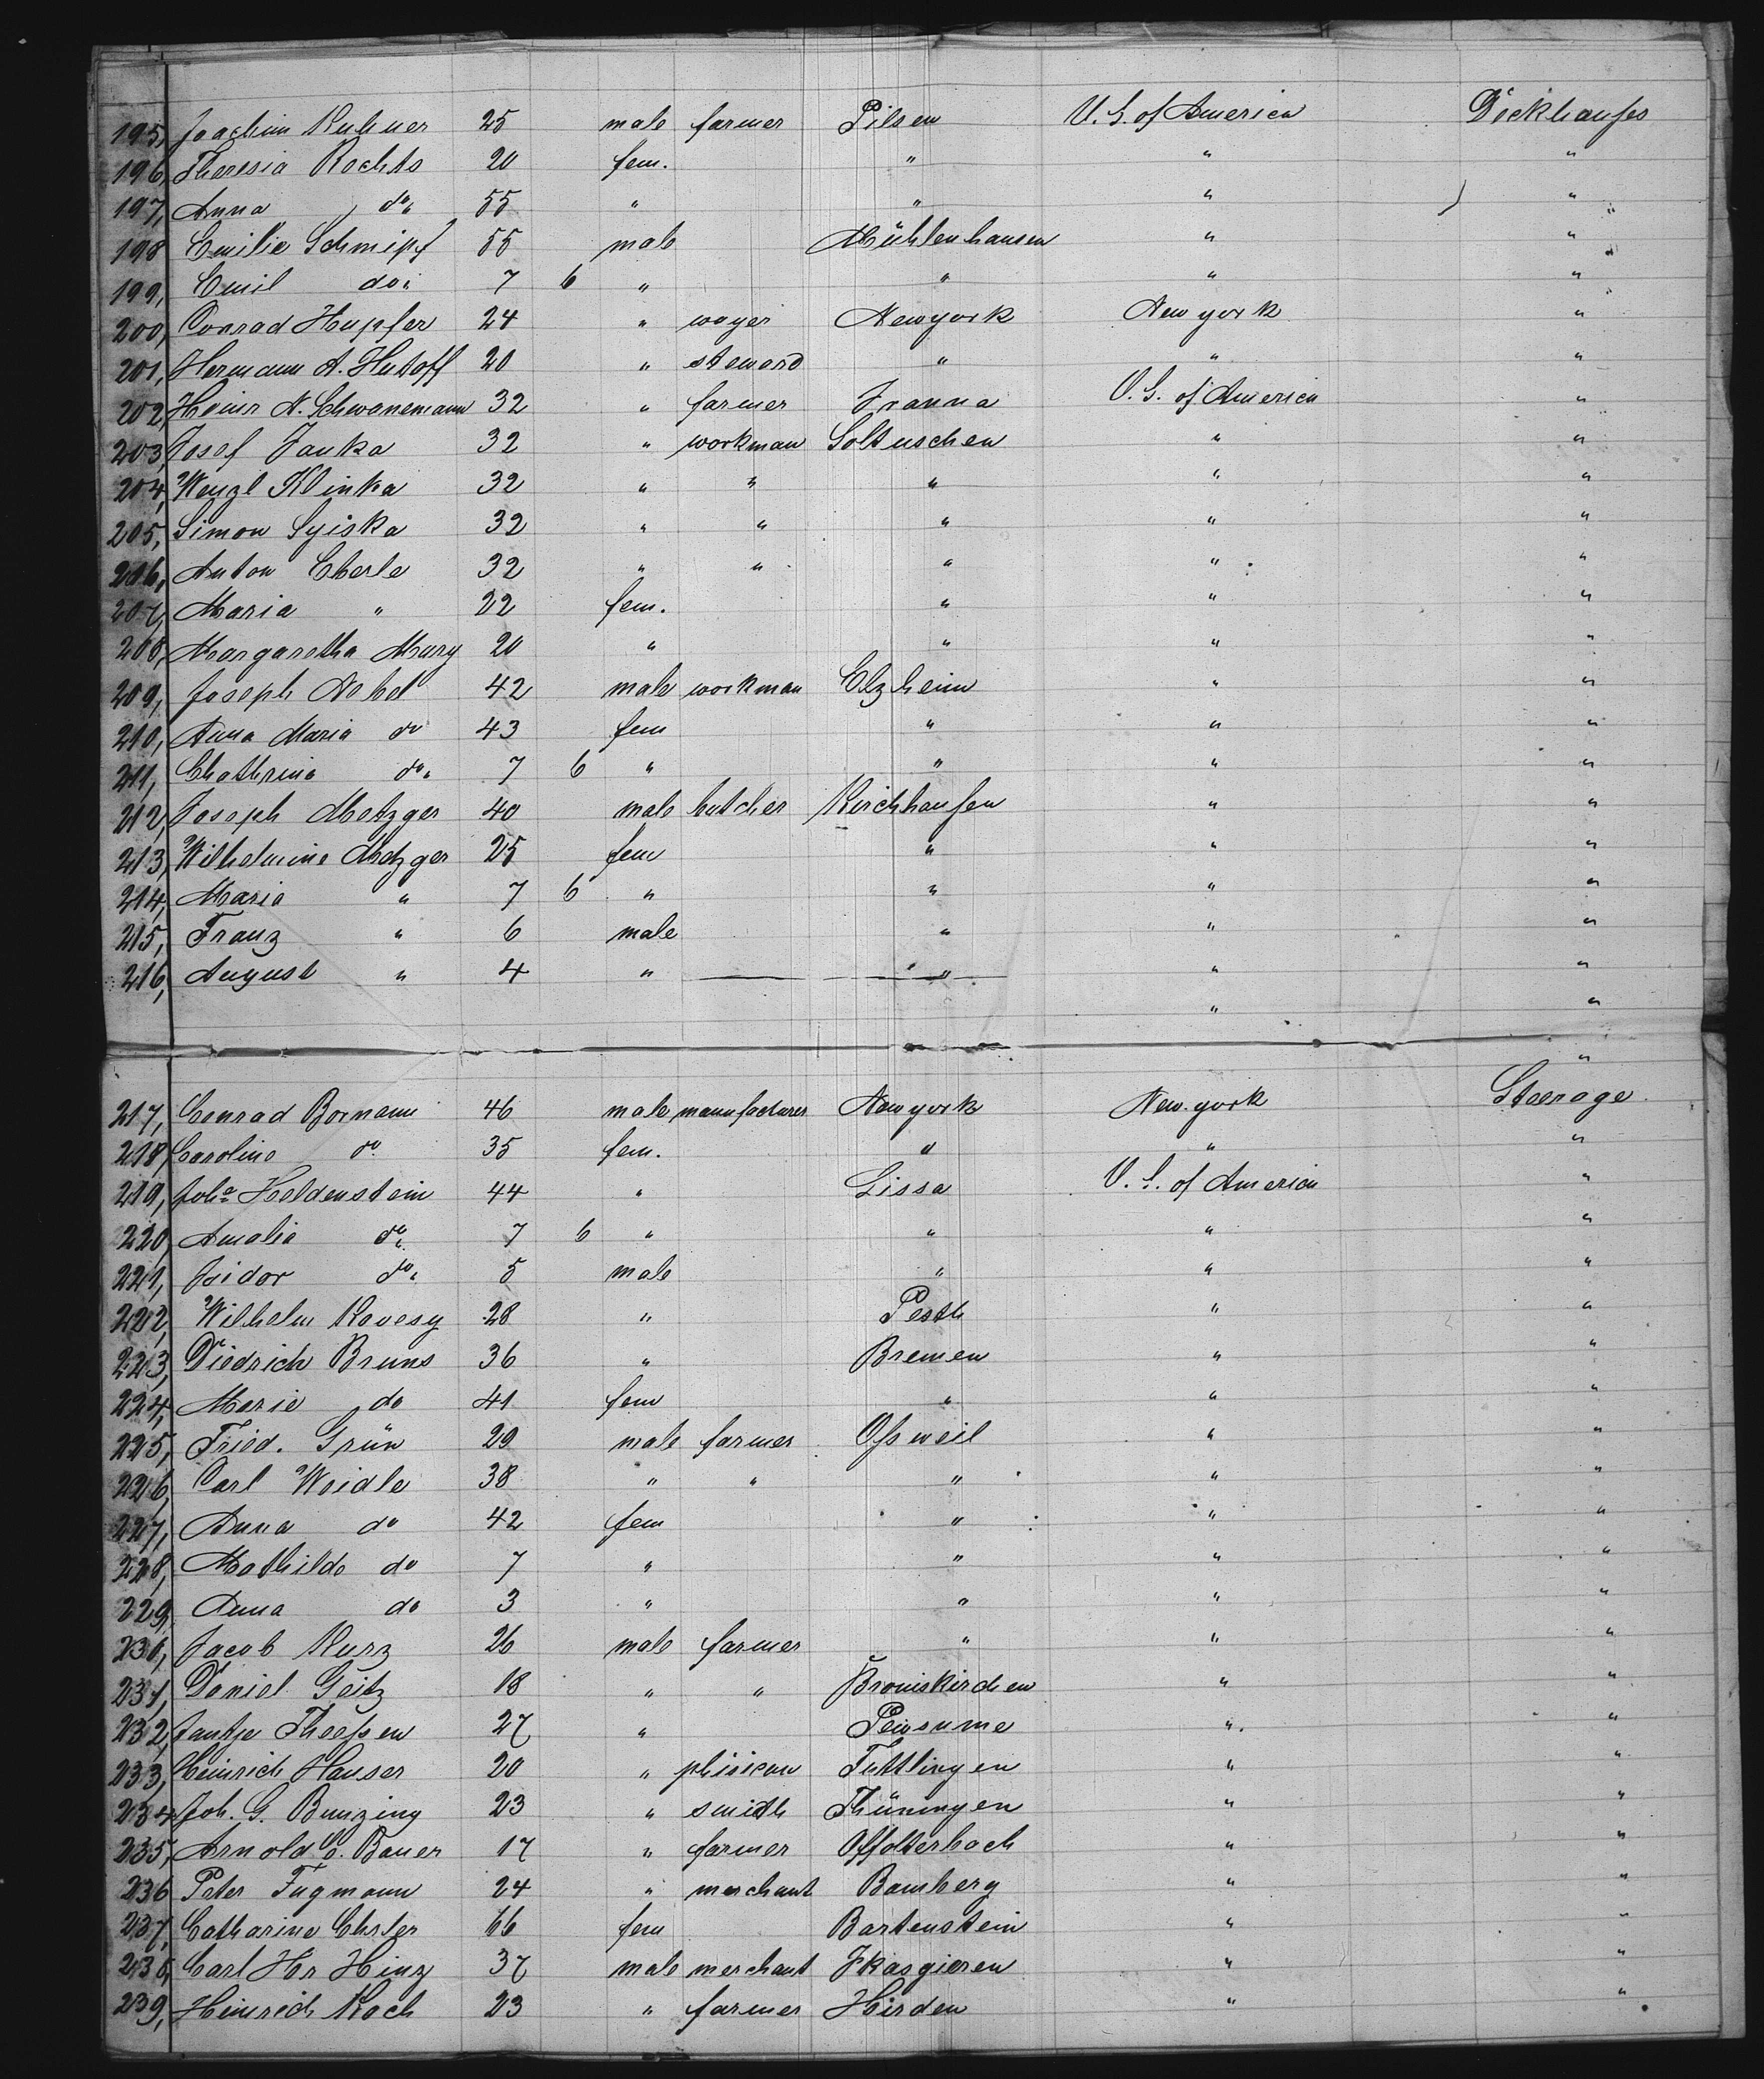 195, Joachim Kuhner 25 male farmer Pilsen U. S. of America Deckhaufes
196, Theresia Rochts 20 fem. " " "
197, Anna do. 55 " " " "
198 Emilie Schmipf 55 male Mühlenhausen " "
199, Emil do. 7 6 " " " "
200, Conrad Hupfer 24 " Newyork New york "
201, Hermann A. Hutoff 20 " steward " " "
202, Heinr N. Schwanemann 32 " farmer Franna U. S. of America "
203, Josef Janka 32 " workman Soltuschen " "
204, Wenzl Klinka 32 " " " " "
205, Simon Syiska 32 " " " " "
206, Anton Eberle 32 " " " " "
207, Maria " 22 fem. " " "
208, Margaretha Mary 20 " " " "
209, Joseph Nebel 42 male workman Elzheim " "
210, Anna Maria do 43 fem " " "
211, Chathrina do. 7 6 " " " "
212, Joseph Metzger 40 male butcher Kirchhausen " "
213, Wilhelmine Metzger 25 fem " " "
214, Maria " 7 6 " " " "
215, Franz " 6 male " " "
216, August " 4 " " " "
" "
"
217, Conrad Bornann 46 male manufacturer New york New-york Steerage
218, Caroline do. 35 fem. " " "
219, Joha Heldenstein 44 " Lissa U. S. of America "
220, Amalia do. 7 6 " " " "
221, Isidor do. 5 male " " "
222, Wilhelm Kovesy 28 " Pesth " "
223, Diedrich Bruns 36 " Bremen " "
224, Marie do 41 fem " " "
225, Fried. Grün 29 male farmer Ossweil " "
226, Carl Weidle 38 " " " " "
227, Anna do 42 fem " " "
228, Mathilde do 7 " " " "
229, Anna do 3 " " " "
230, Jacob Kurz 26 male farmer " " "
231, Daniel Geitz 18 " " Bromskirchen " "
232, Jantje Theessen 27 " Pewsume " "
233, Heinrich Hauser 20 " phisican Tuttlingen " "
234, Joh. G. Bunzing 23 " smith Thüningen " "
235, Arnold C. Bauer 17 " farmer Affolterbach " "
236 Peter Fugmann 24 " merchant Bamberg " "
237, Catharine Ehrler 66 fem Bartenstein " "
238, Carl Hr Hinz 37 male merchant " "
239, Heinrich Koch 23 " farmer Hirden " "